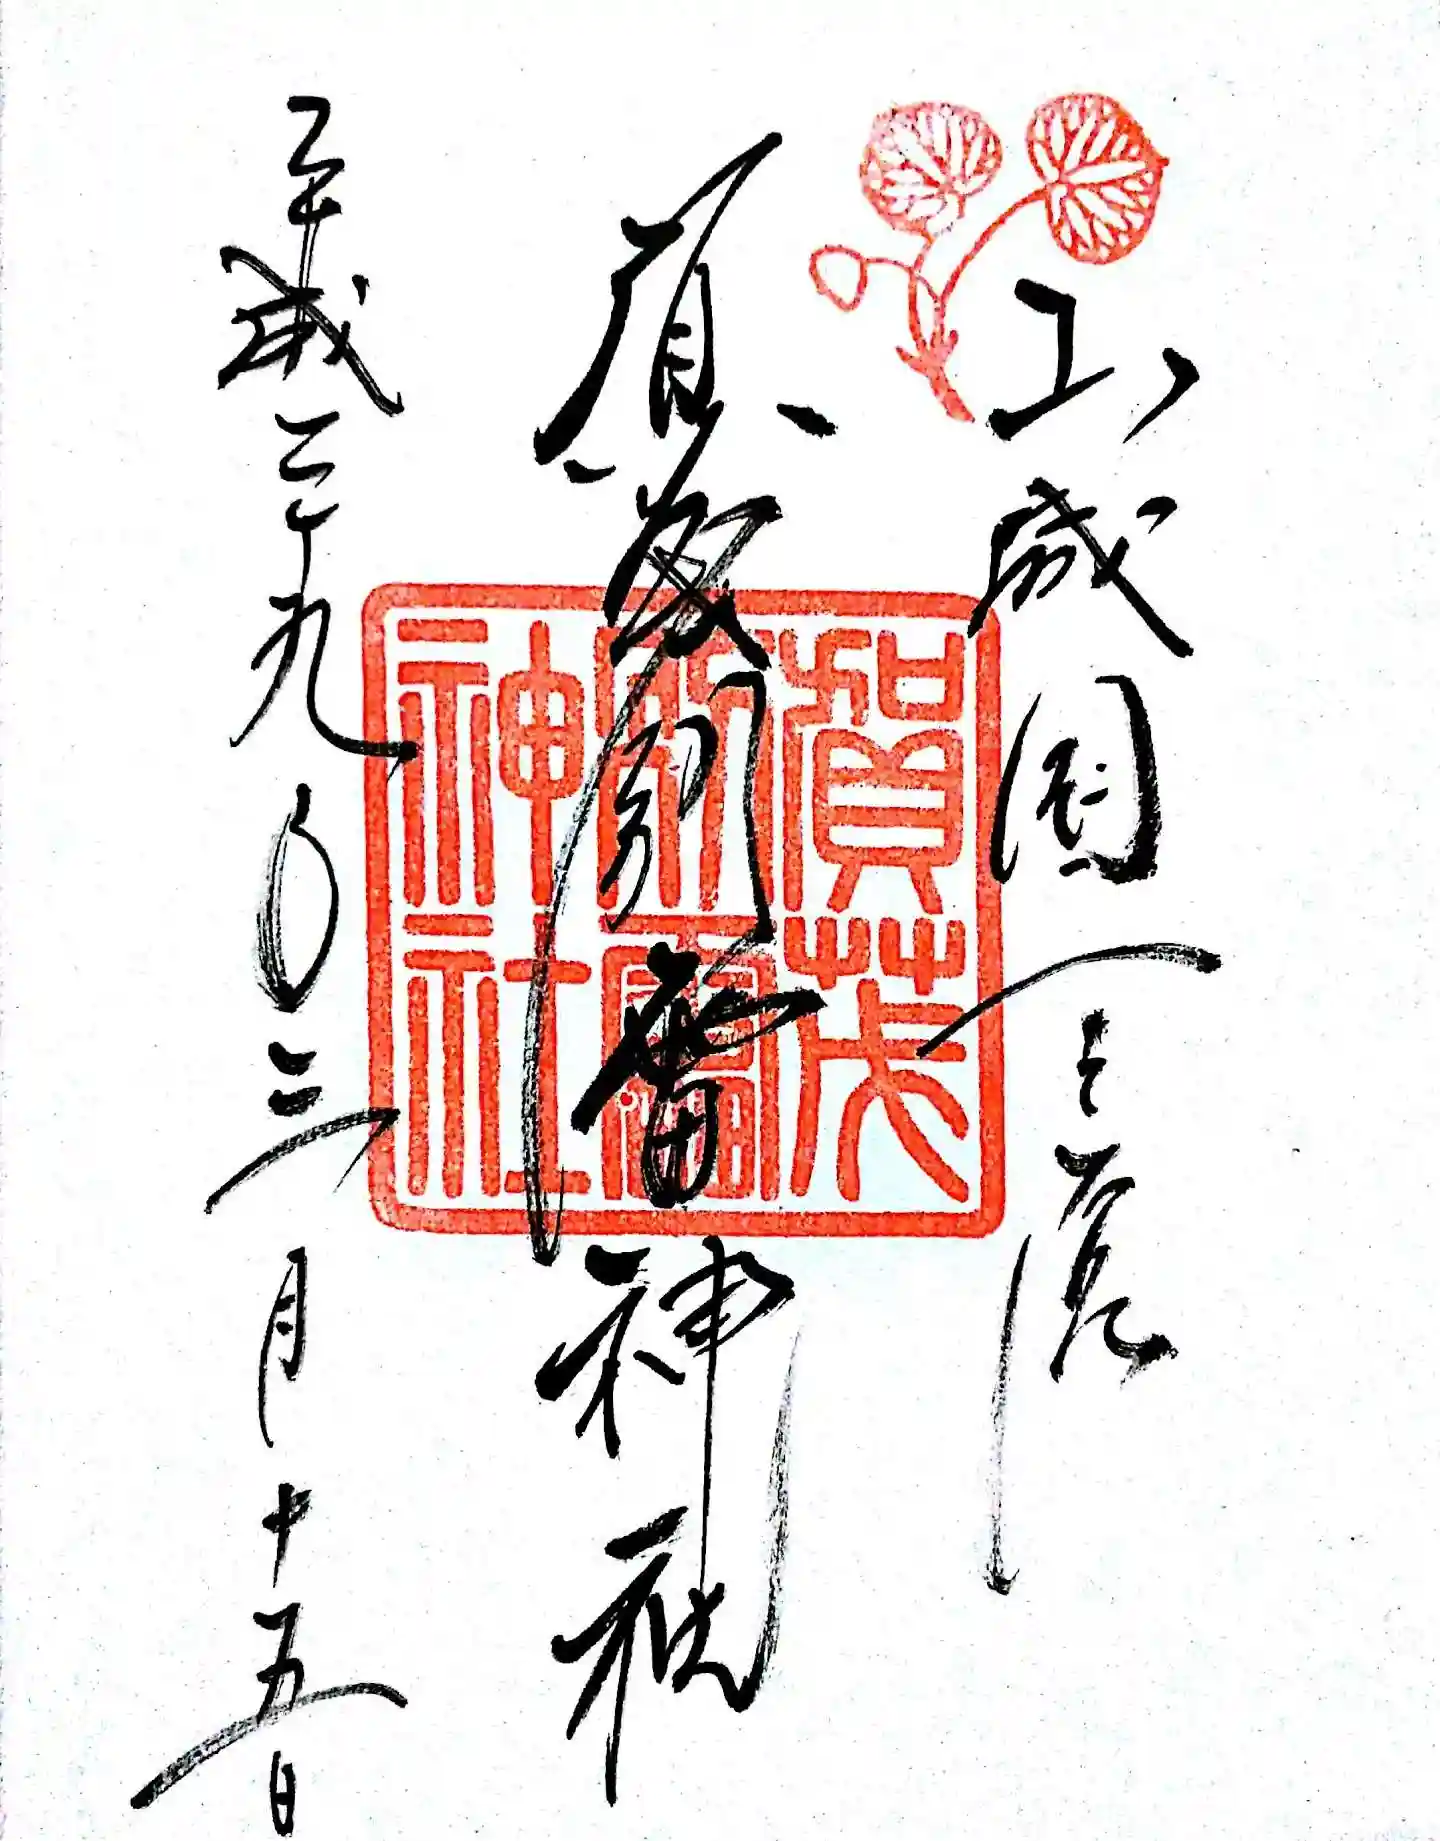 山城国一之宮
賀茂別雷神社
平成二十九年三月十五日
賀茂
別雷
神社